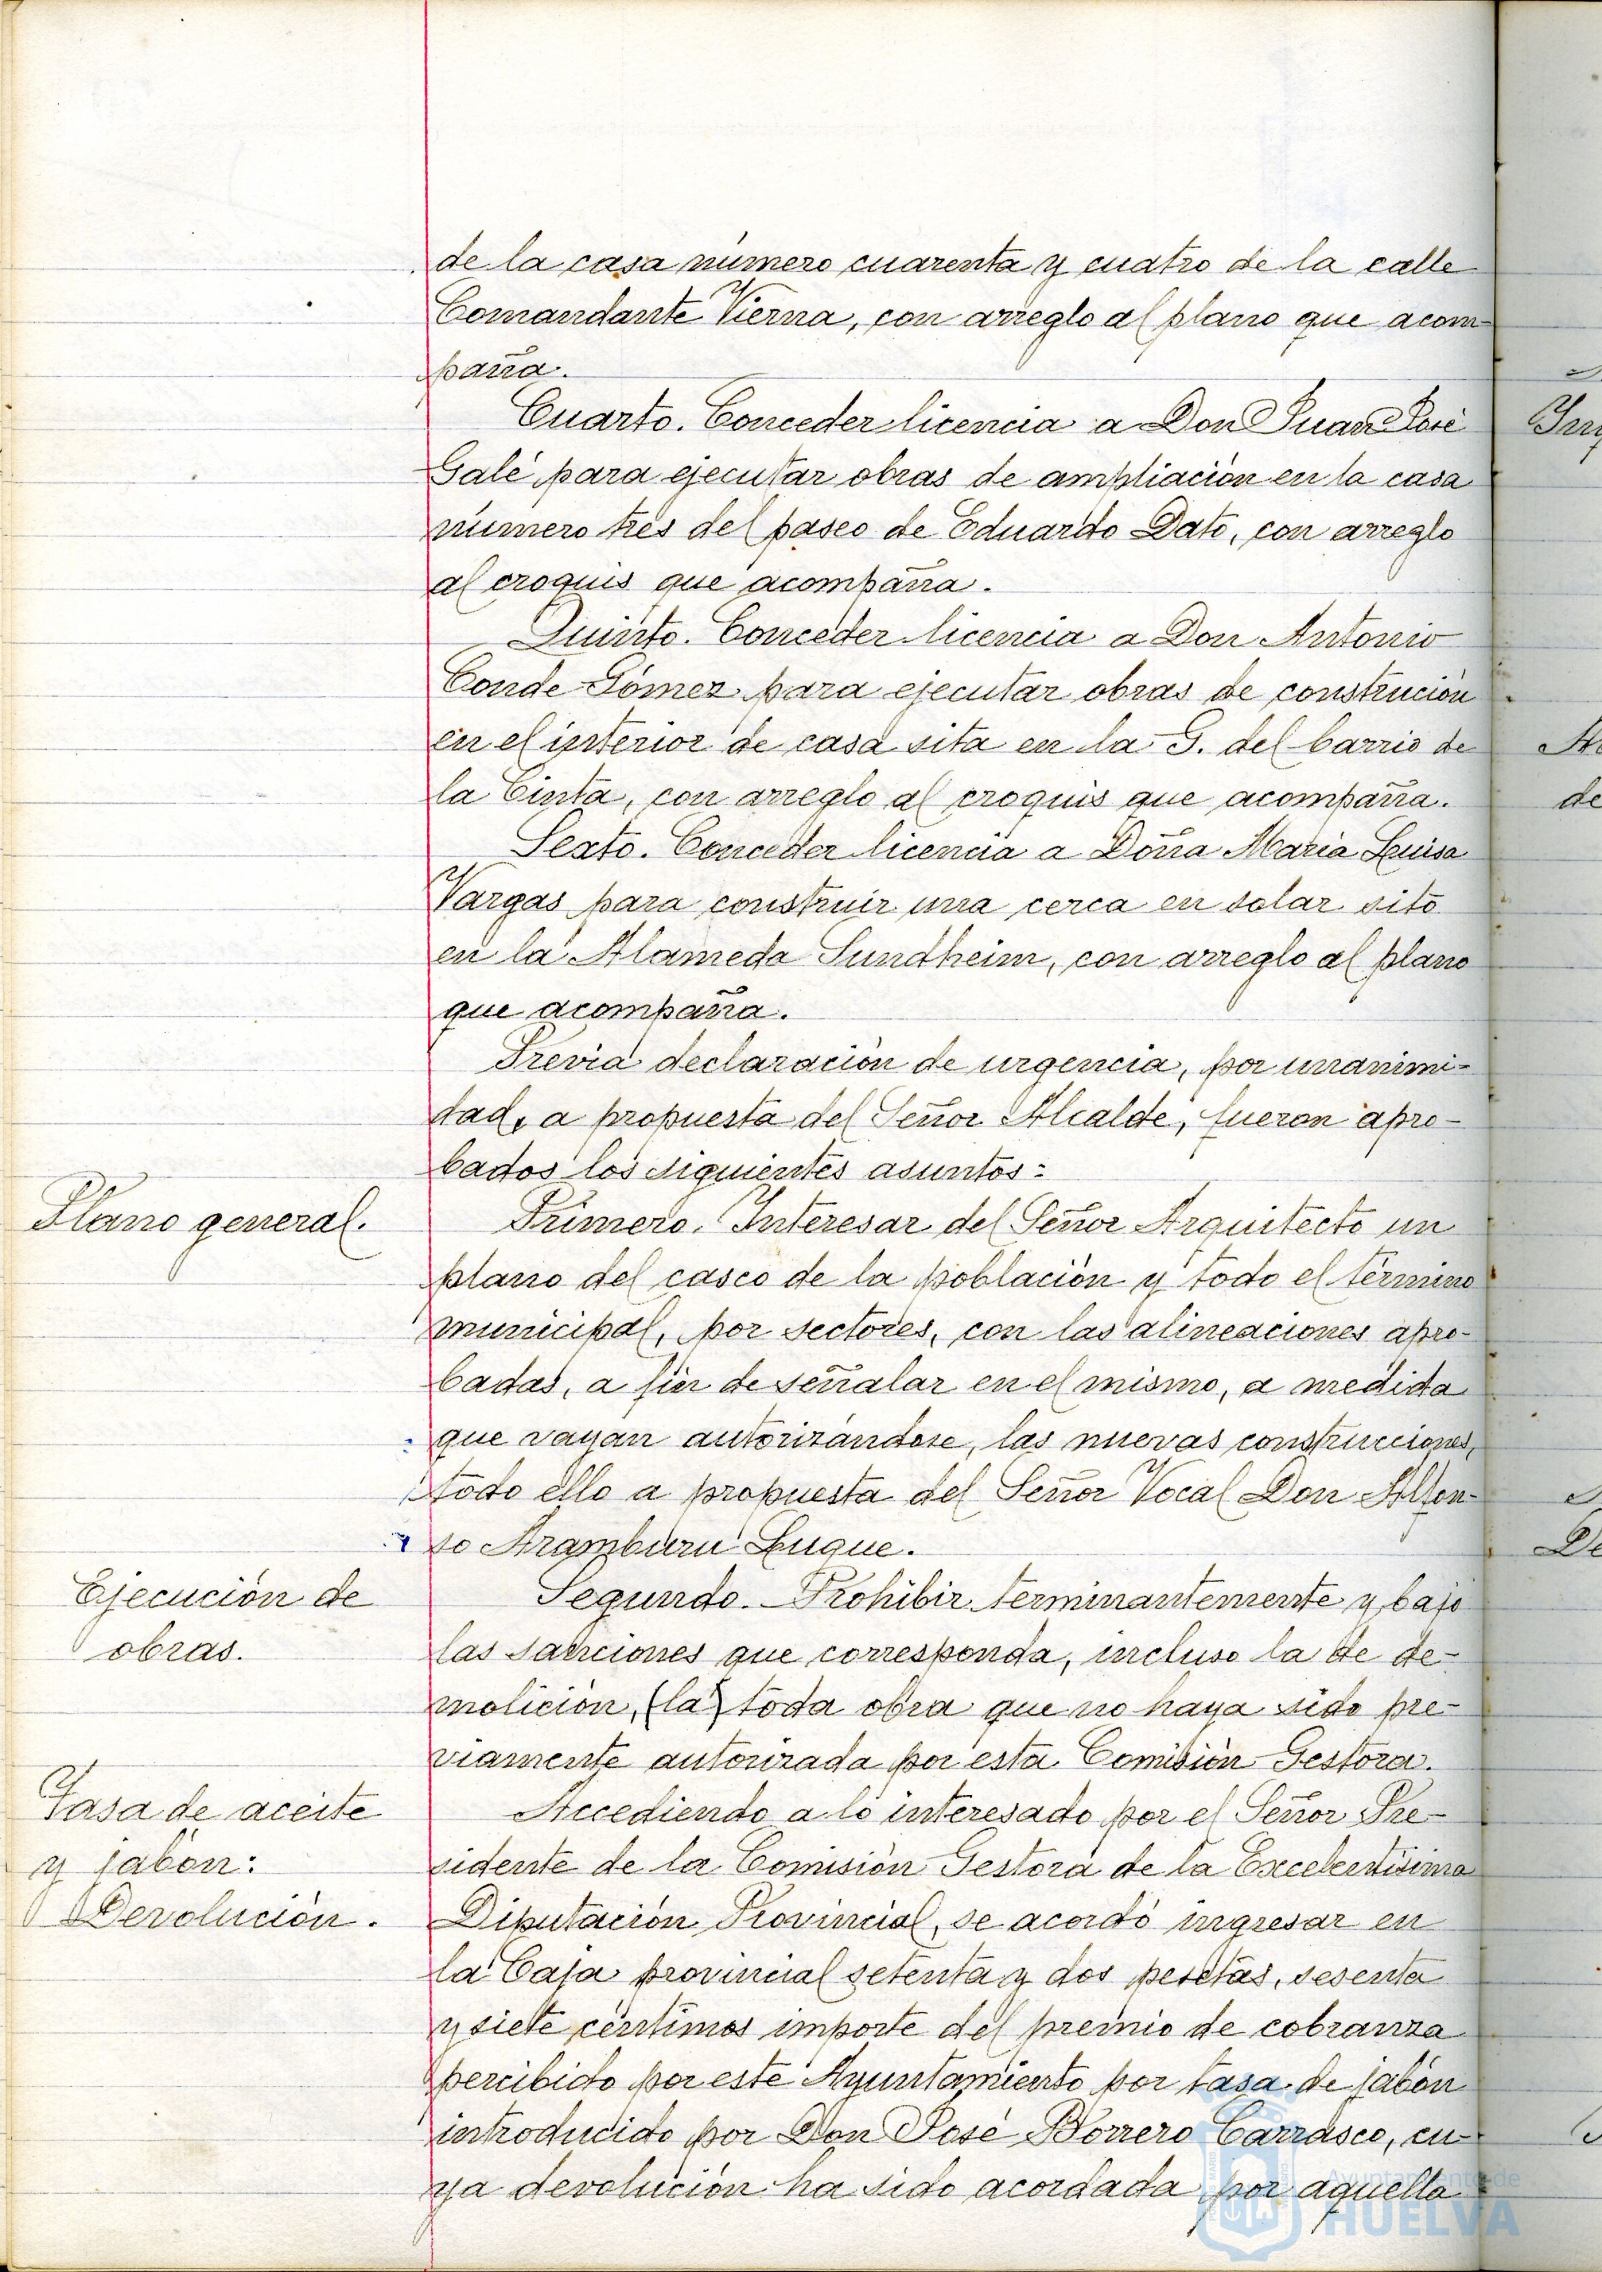 de la casa número cuarenta y cuatro de la calle
Comandante Vierna, con arreglo al plano que acom-
paña.
Cuarto. Conceder licencia a Don Juan José
Galé para ejecutar obras de ampliación en la casa
número tres del paseo de Eduardo Dato, con arreglo
al croquis que acompaña.
Quinto. Conceder licencia a Don Antonio
Conde Gómez para ejecutar obras de construción
en el interior de casa sita en la G. del barrio de
la Cinta, con arreglo al croquis que acompaña.
Sexto. Conceder licencia a Doña Maria Luisa
Vargas para construir una cerca en solar sito
en la Alameda Sundheim, con arreglo al plano
que acompaña.
Previa declaración de urgencia, por unanimi-
dad, a propuesta del Señor Alcalde, fueron apro-
bados los siguientes asuntos:
Plano general.
Primero. Interesar del Señor Arquitecto un
plano del casco de la población y todo el término
municipal, por sectores, con las alineaciones apro-
badas, a fin de señalar en el mismo, a medida
que vayan autorizándose, las nuevas construcciones,
todo ello a propuesta del Señor Vocal Don Alfon-
so Aramburu Luque.
Ejecución de
obras.
Segundo. Prohibir terminantemente y bajo
las sanciones que corresponda, incluso la de de-
molición, (la) toda obra que no haya sido pre-
viamente autorizada por esta Comisión Gestora.
Tasa de aceite
y jabón:
Devolución.
Accediendo a lo interesado por el Señor Pre-
sidente de la Comisión Gestora de la Excelentísima
Diputación Provincial, se acordó ingresar en
la Caja provincial setenta y dos pesetas, sesenta
y siete céntimos importe del premio de cobranza
percibido por este Ayuntamiento por tasa de jabón
introducido por Don José Borrero Carrasco, cu-
ya devolución ha sido acordada por aquella
Ayuntamiento de
HUELVA